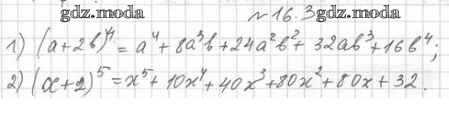 gdz.moda gdz.moda
№16.3
1) (a+2b)⁴ = a⁴ + 8a³b + 24a²b² + 32ab³ + 16b⁴;
2) (x+2)⁵ = x⁵ + 10x⁴ + 40x³ + 80x² + 80x + 32.